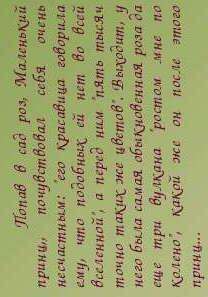 Попав в сад роз, Маленький
принц, почувствовал себя очень
несчастным: "его красавица говорила
ему, что подобных ей нет во всей
вселенной", а перед ним "пять тысяч
точно таких же цветов". Выходит, у
него была самая обыкновенная роза да
еще три вулкана "ростом мне по
колено", какой же он после этого
принц...